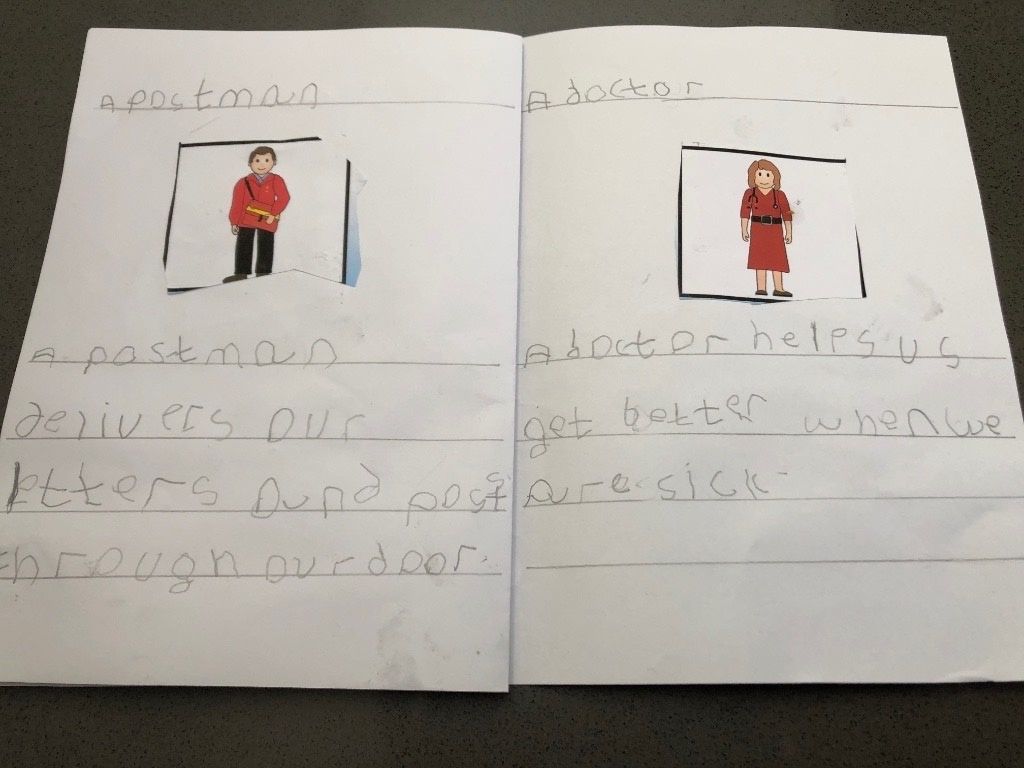 A postman
A postman
delivers our
letters and post
through our door.
A doctor
A doctor helps us
get better when we
are sick